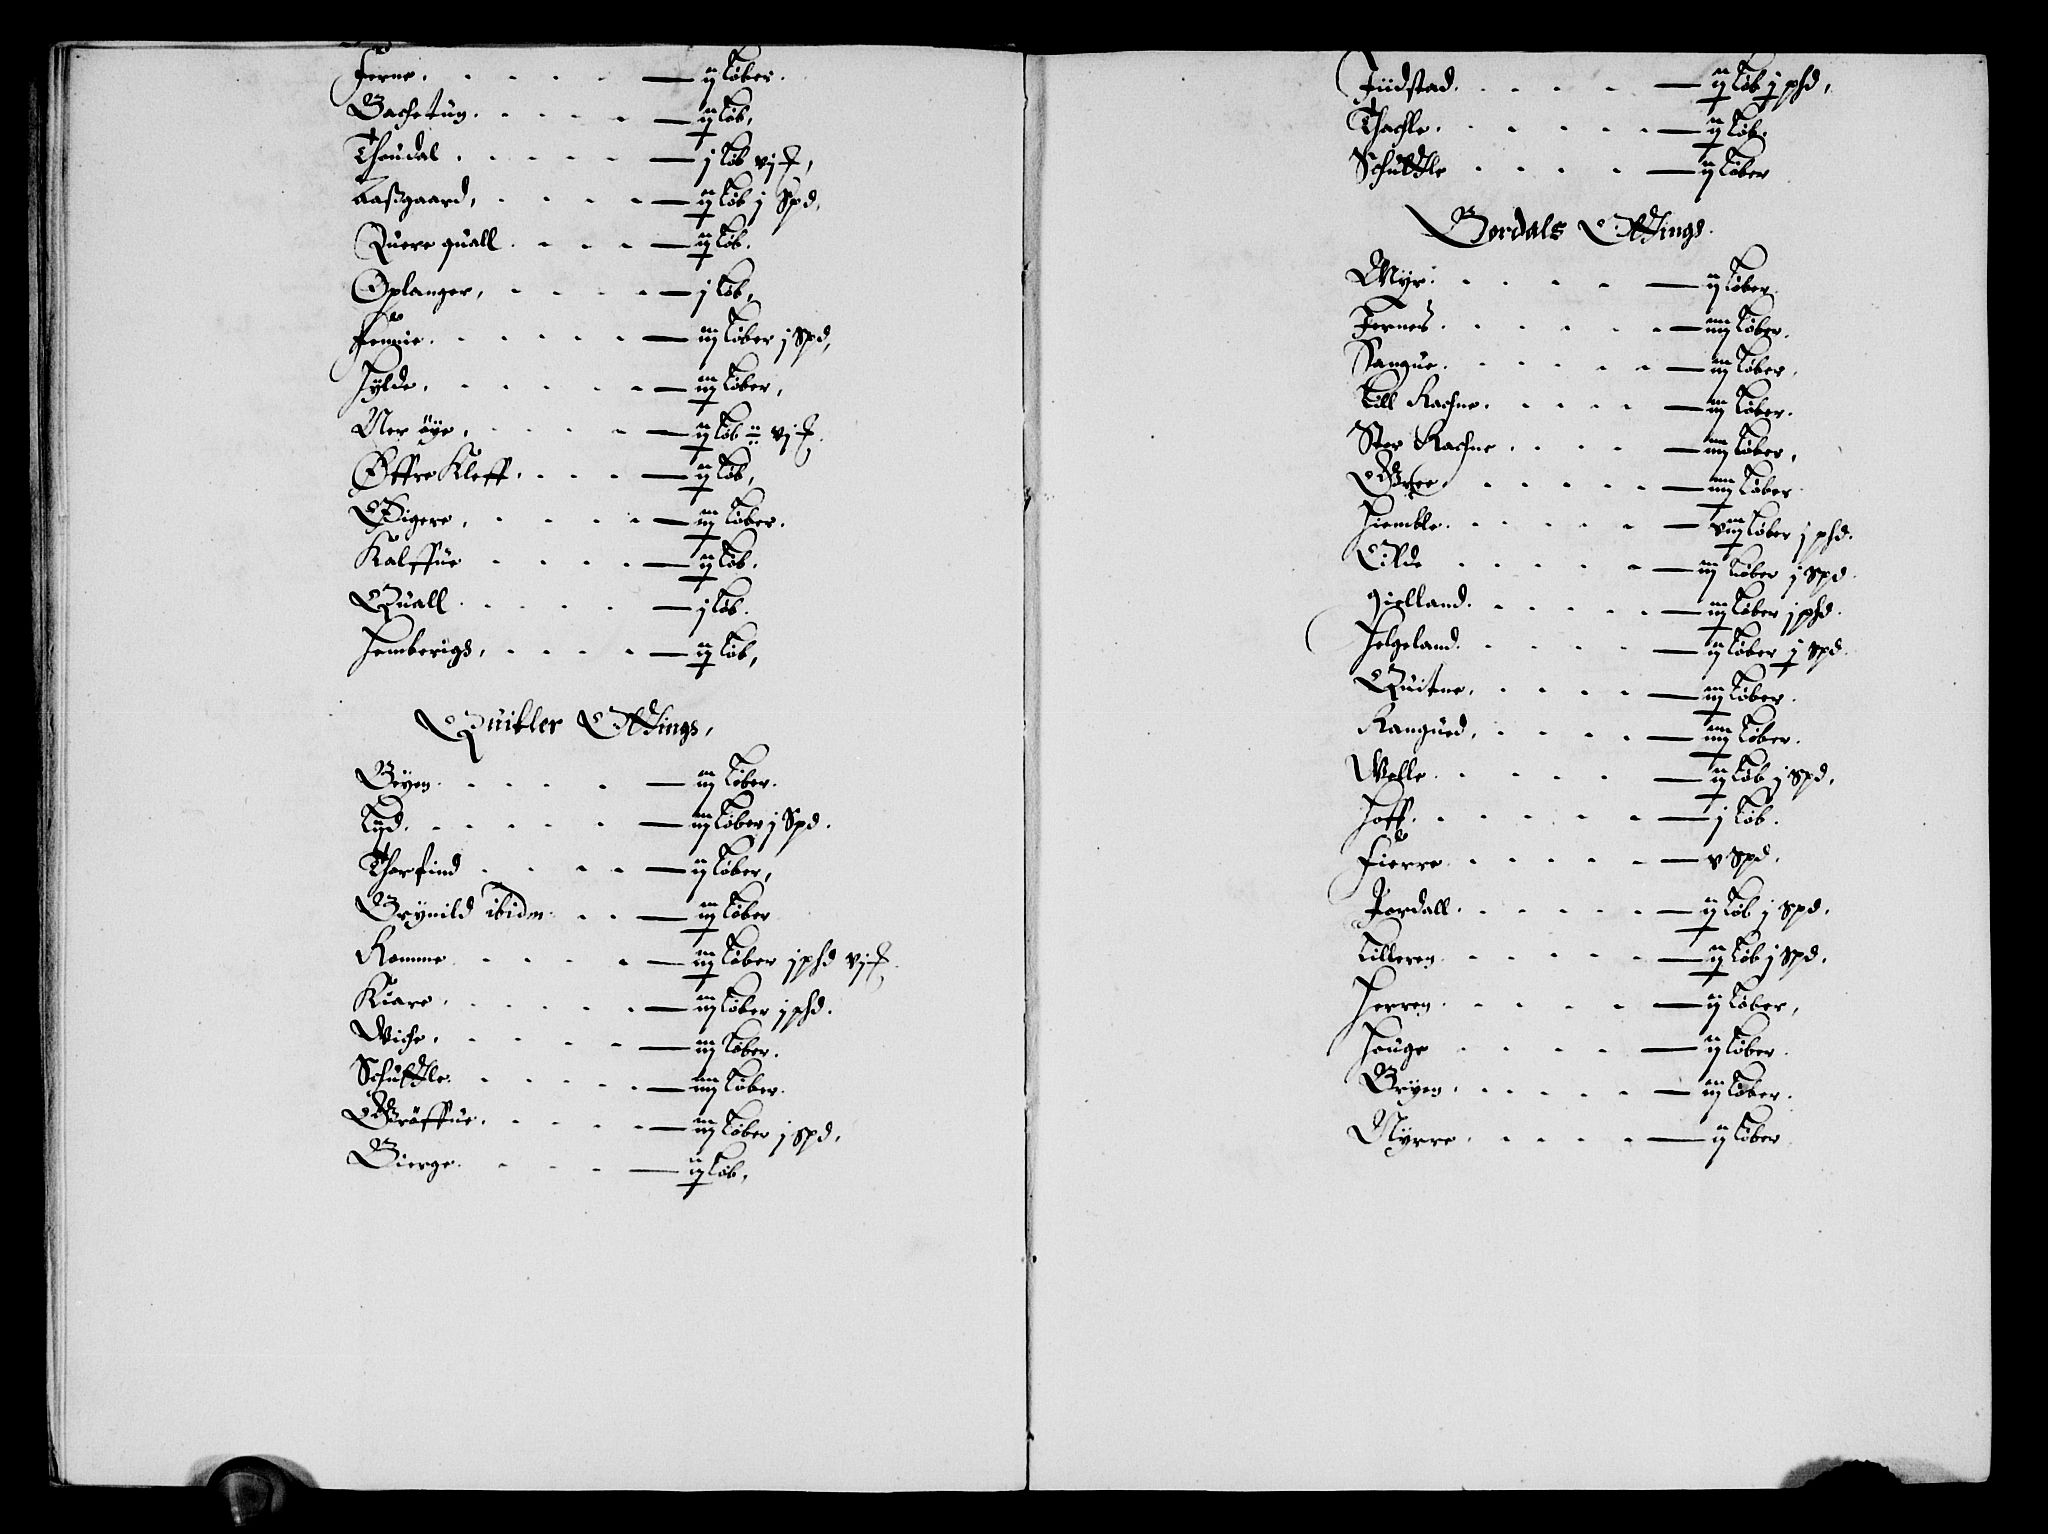 Ferne. — ij Løber.
Bachetun. — ij Løb,
Thoudal. — j Løb vj
Aassgaard, — ij Løb j Spd,
Quere quall. — ij Løb.
Oplanger, — j Løb,
Fennie. — iij Løber j Spd,
Hylde, — iij Løber,
Nes øye, — ij Løb vj
Øffre Kleff. — ij Løb,
Digere, — iij Løber.
Kalffue — ij Løb.
Quall. — j Løb.
Hemberigs, — ij Løb,
Quitler Otting,
Bryen. — iij Løber.
Lyd. — iij Løber j Spd.
Thorfind — ij Løber,
Brynild ibidm. — iij Løber
Romme — iij Løber j phd vj
Kuare. — iij Løber j phd.
Wiche, — iij Løber.
Schuttle. — iiij Løber.
Gröffue. — iij Løber j spd,
Bierge. — ij Løb,
Fiidstad. — ij Løb j phd,
Thachle. — ij Løb.
Schuttle — ij Løber
Bordals Otting.
Myr. — ij Løber.
Fernes. — iiij Løber.
Sangue. — iij Løber,
Lill Rachne. — iij Løber.
Stor Rachne. — iiij Løber,
Gree. — iiij Løber
Hiemble. — viij Løber j phd.
Ilde — iij Løber j spd
gielland. — iij Løber j phd.
Helgeland. — ij Løber j spd.
Quitne. — iij Løber.
Rangued, — iiij Løber.
Welle. — ij Løb j spd,
Hoff. — j Løb.
Fierre. — v spd.
Jordall. — ij Løb j spd.
Lilleren. — ij Løb j spd,
Herren. — ij Løber,
Houge — ij Løber.
Bryen, — iij Løber.
Nyrre. — ij Løber